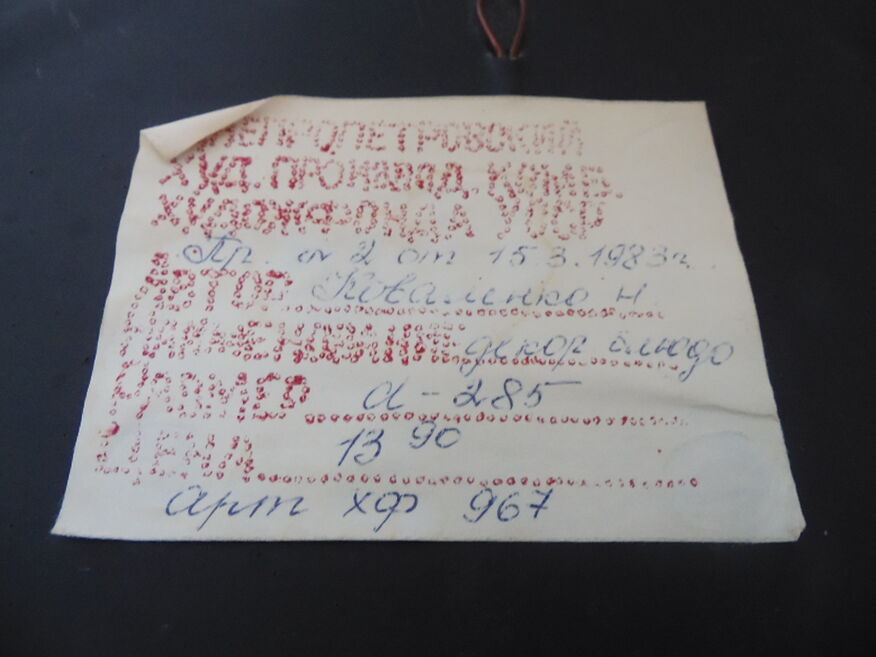 ДНЕПРОПЕТРОВСКИЙ
ХУД. ПРОИЗВОД. КОМБ.
ХУДОЖФОНДА УССР
Пр. № 2 от 15.3.1983г.
АВТОР Коваленко Н.
НАЗВАНИЕ декор блюдо
РАЗМЕР d-285
ЦЕНА 13 90
арт ХФ 967